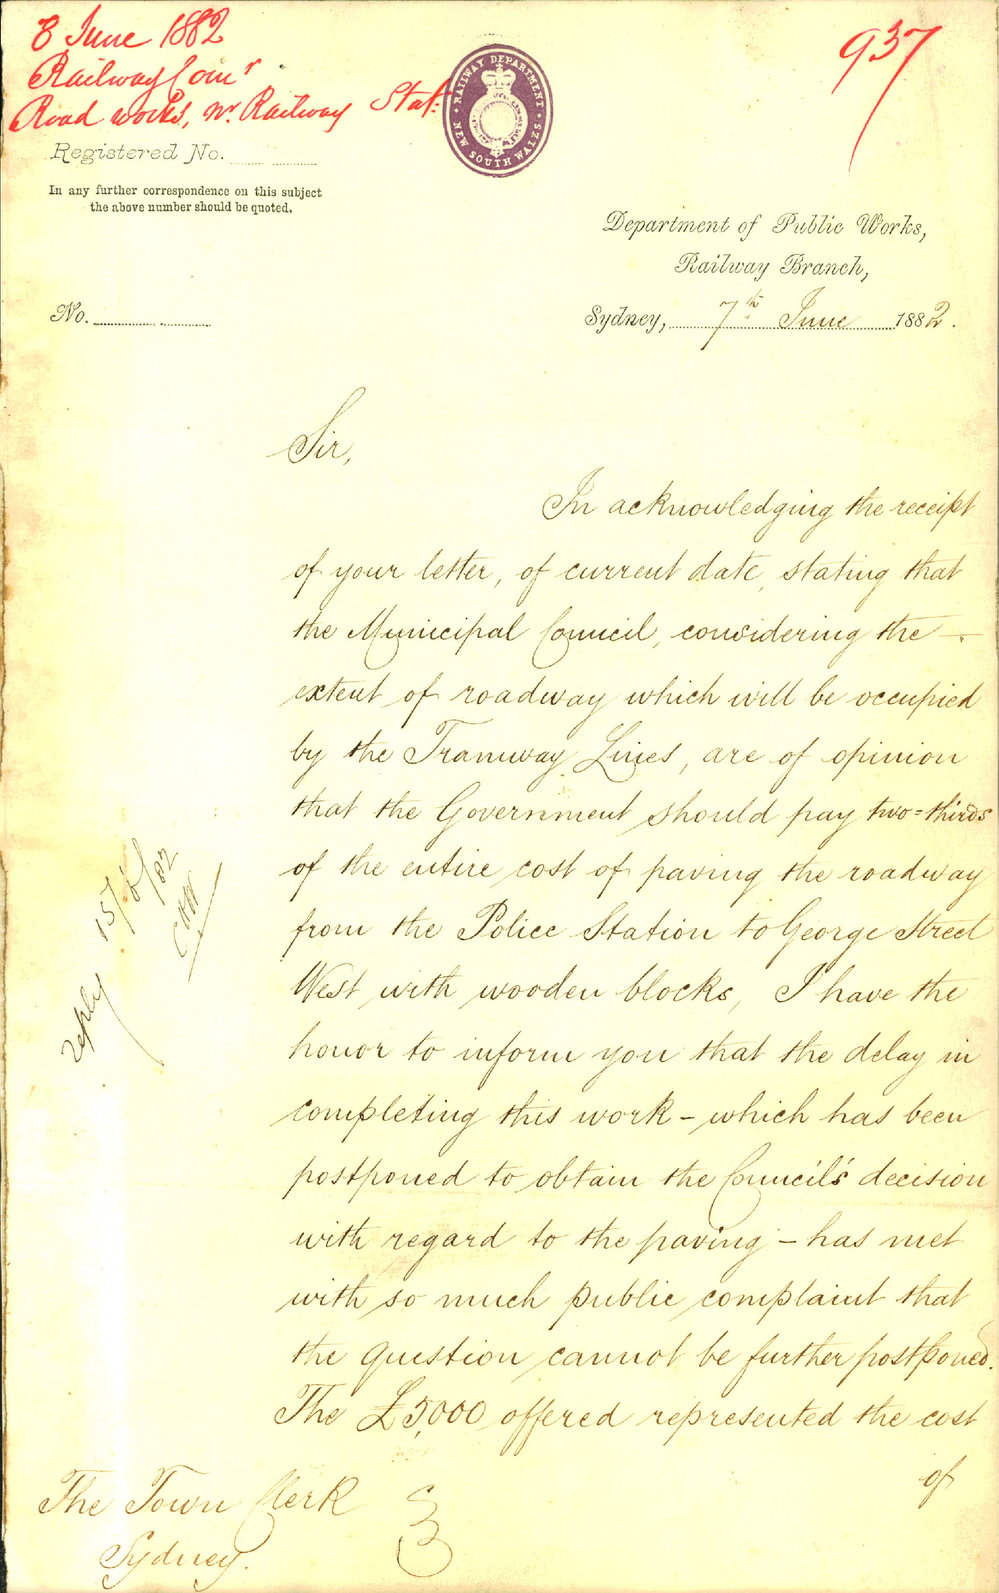 8 June 1882
937
Railway Comr
Road works, nr. Railway Stat.
RAILWAY DEPARTMENT
NEW SOUTH WALES
Registered No.
In any further correspondence on this subject
the above number should be quoted.
Department of Public Works,
Railway Branch,
No.
Sydney, 7th June 1882.
Sir,
In acknowledging the receipt
of your letter, of current date, stating that
the Municipal Council, considering the
extent of roadway which will be occupied
by the Tramway Lines, are of opinion
that the Government should pay two=thirds
of the entire cost of paving the roadway
from the Police Station to George Street
West with wooden blocks, I have the
honor to inform you that the delay in
completing this work - which has been
postponed to obtain the Council's decision
with regard to the paving - has met
with so much public complaint that
the question cannot be further postponed.
The £5,000 offered represented the cost
of
reply 15/6/82
The Town Clerk
Sydney.